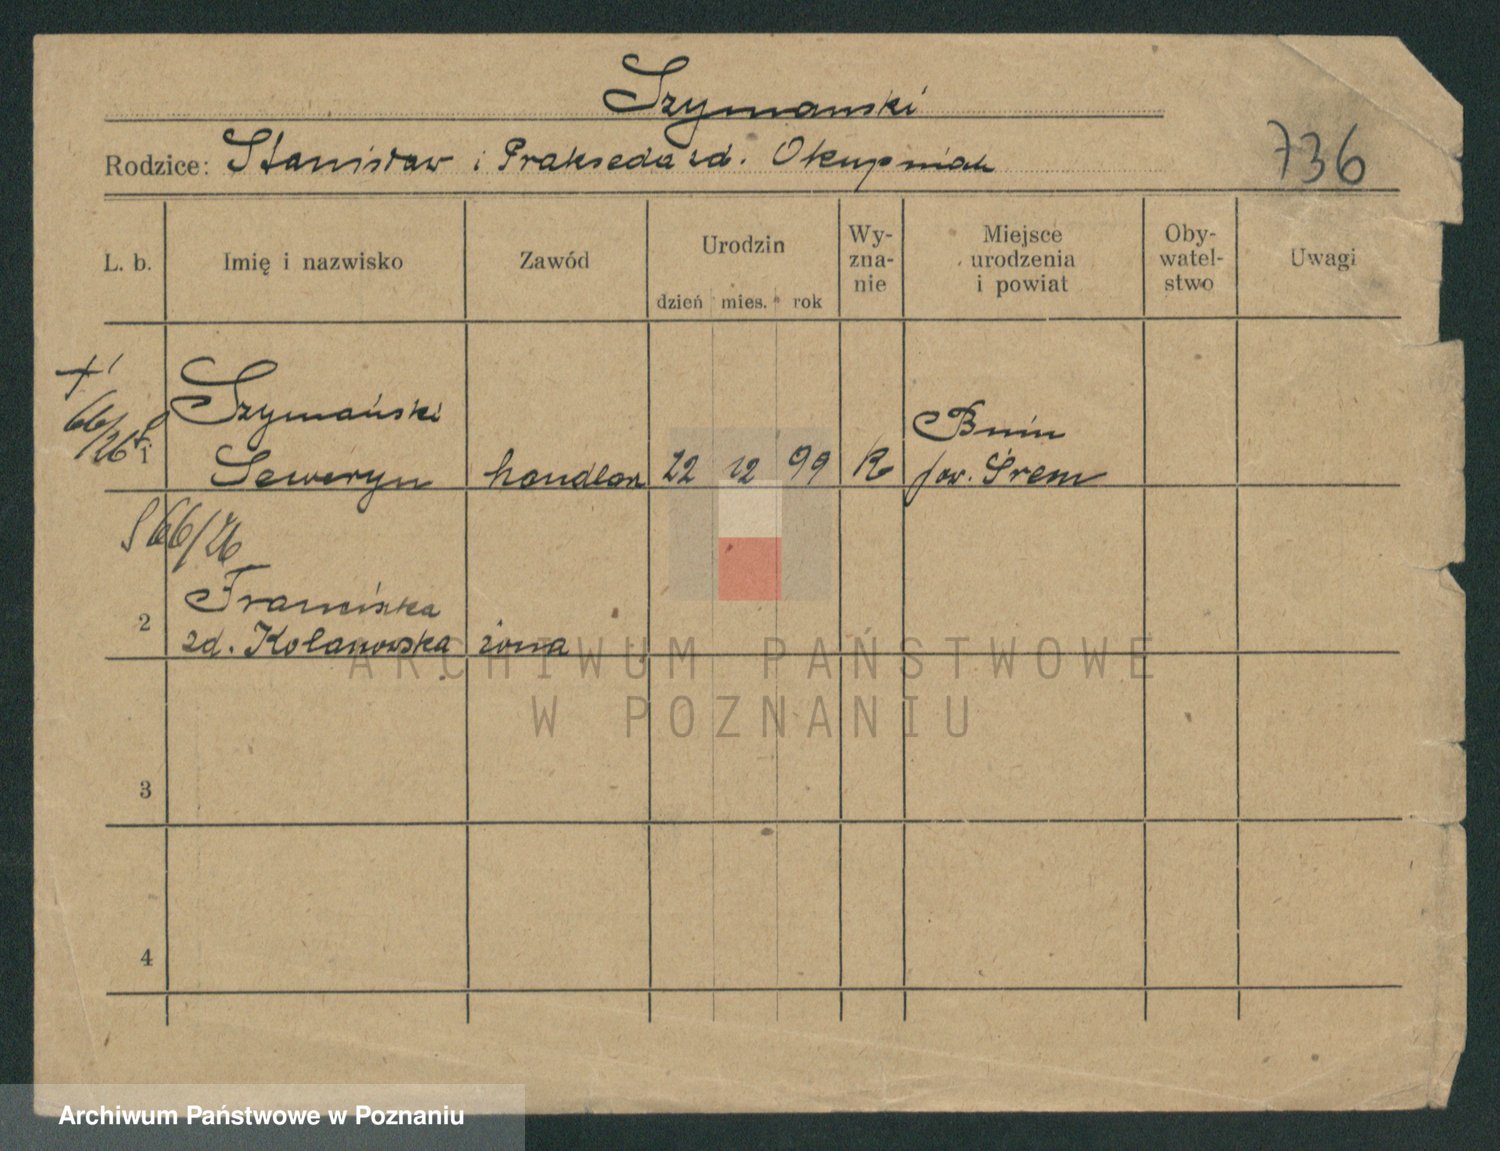 Szymanski
Rodzice: Stanisław i Prakseda zd. Okupniak
736
L. b. Imię i nazwisko Zawód Urodzin Wy-zna-nie Miejsce urodzenia i powiat Oby-watel-stwo Uwagi
dzień mies. rok
66/26
1 Szymański
Seweryn handlarz 22 12 99 R Bnin
pow. Śrem
S 66/26
2 Franciszka
zd. Kolanowska żona
ARCHIWUM PAŃSTWOWE
W POZNANIU
3
4
Archiwum Państwowe w Poznaniu